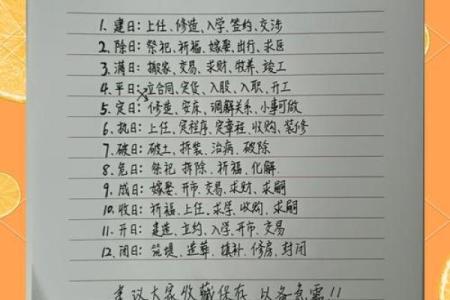 1. 建日：上任、修造、入学、签约、交涉
2. 除日：祭祀、祈福、嫁娶、出行、求医
3. 满日：搬家、交易、求财、牧养、竣工
4. 平日：立合同、定货、入股、入职、开工
5. 定日：修造、安床、调解关系、小事可做
6. 执日：上任、定程序、定章程、收购、装修
7. 破日：破土、拆装、治病、破除
8. 危日：祭祀 拆除、祈福、化解
9. 成日：嫁娶、开市、交易、求财、求嗣
10. 收日：祈福、上任、求学、收购、求嗣
11. 开日：建造、立约、入学、开市、交易
12. 闭日：筑堤、造葬、填补、修房、封闭
建议大家收藏保存 以备急需!!